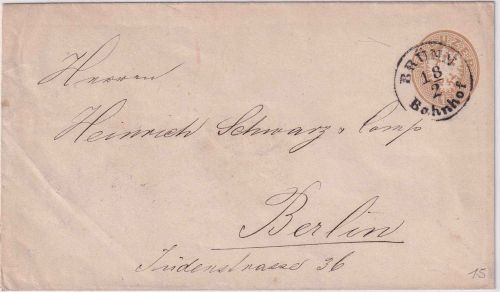 BRÜNN
18
2
Bahnhof
Herren
Heinrich Schwarz & Comp
Berlin
Jüdenstrasse 36
15